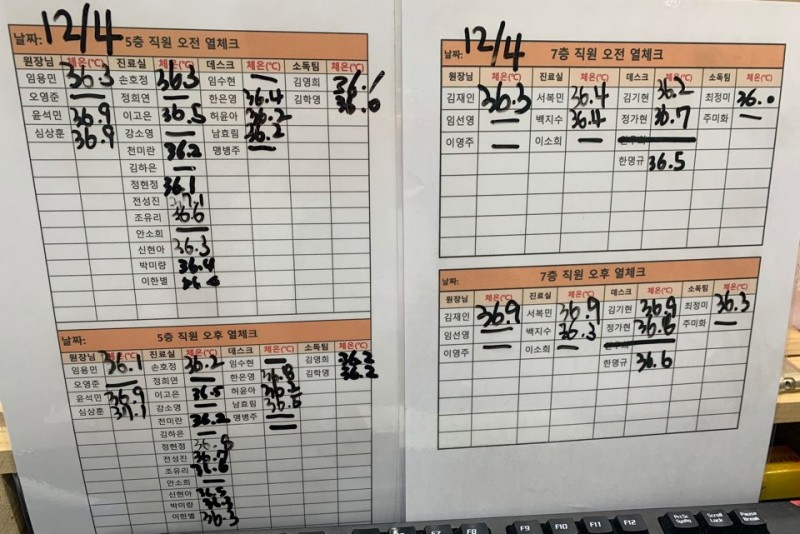 날짜: 12/4 5층 직원 오전 열체크
원장님 체온(℃) 진료실 체온(℃) 데스크 체온(℃) 소독팀 체온(℃)
임용민 36.3 손호정 36.3 임수현 — 김영희 36.1
오영준 — 정희연 — 한은영 36.4 김학영 36.0
윤석민 36.9 이고은 36.5 허윤아 36.2
심상훈 36.9 강소영 — 남효림 36.2
천미란 36.2 맹병주 —
김하은 —
정현정 36.1
전성진
조유리 36.6
안소희 —
신현아 36.3
박미랑 36.4
이한별
날짜: 5층 직원 오후 열체크
원장님 체온(℃) 진료실 체온(℃) 데스크 체온(℃) 소독팀 체온(℃)
임용민 36.1 손호정 36.2 임수현 — 김영희 36.2
오영준 — 정희연 — 한은영 36.8 김학영 36.2
윤석민 36.9 이고은 36.5 허윤아 36.2
심상훈 37.1 강소영 — 남효림 36.6
천미란 36.2 맹병주 —
김하은 —
정현정
전성진 36.7
조유리 36.6
안소희 —
신현아 36.5
박미랑 36.3
이한별 36.3
날짜: 12/4 7층 직원 오전 열체크
원장님 체온(℃) 진료실 체온(℃) 데스크 체온(℃) 소독팀 체온(℃)
김재인 36.3 서복민 36.4 김기현 36.2 최정미 36.0
임선영 — 백지수 36.4 정가현 36.7 주미화 —
이영주 — 이소희 —
한명규 36.5
날짜: 7층 직원 오후 열체크
원장님 체온(℃) 진료실 체온(℃) 데스크 체온(℃) 소독팀 체온(℃)
김재인 36.9 서복민 36.9 김기현 36.9 최정미 36.3
임선영 — 백지수 36.3 정가현 36.6 주미화 —
이영주 — 이소희 —
한명규 36.6
F7 F8 F9 F10 F11 F12 PrtSc SysRq Scroll Lock Pause Break